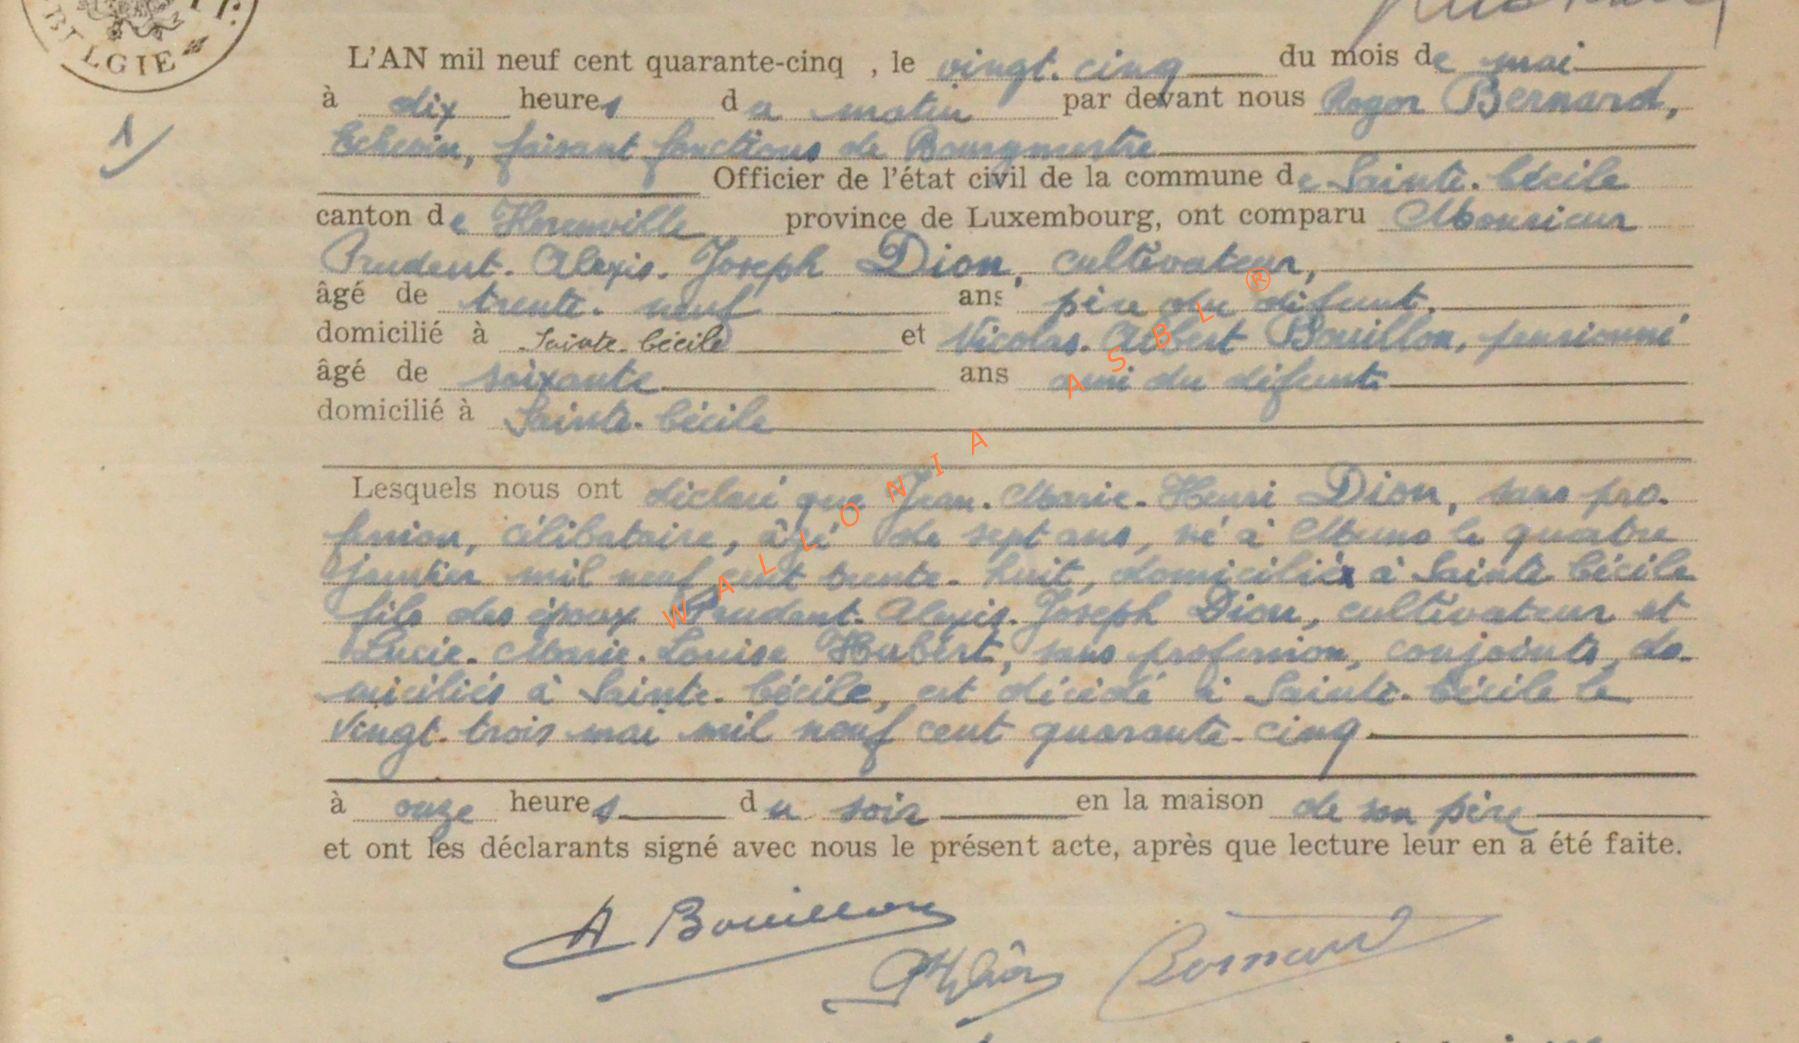 BELGIE
L'AN mil neuf cent quarante-cinq , le vingt-cinq du mois de mai
à dix heures du matin par devant nous Roger Bernard,
1/
Echevin, faisant fonctions de Bourgmestre
Officier de l'état civil de la commune de Sainte-Cécile
canton de Florenville province de Luxembourg, ont comparu Monsieur
Prudent-Alexis-Joseph Dion, cultivateur,
âgé de trente-neuf ans père du défunt.
domicilié à Sainte-Cécile et Nicolas-Albert Bouillon, pensionné
âgé de soixante ans ami du défunt
domicilié à Sainte-Cécile
Lesquels nous ont déclaré que Jean-Marie-Henri Dion, sans pro-
fession, célibataire, âgé de sept ans, né à Muno le quatre
janvier mil neuf cent trente-huit, domicilié à Sainte Cécile
fils des époux Prudent-Alexis-Joseph Dion, cultivateur et
Lucie-Marie-Louise Hubert, sans profession, conjoints, do-
miciliés à Sainte-Cécile, est décédé à Sainte-Cécile le
vingt-trois mai mil neuf cent quarante-cinq
à onze heures du soir en la maison de son père
et ont les déclarants signé avec nous le présent acte, après que lecture leur en a été faite.
A Bouillon
Bernard
WALLONIA ASBL ®